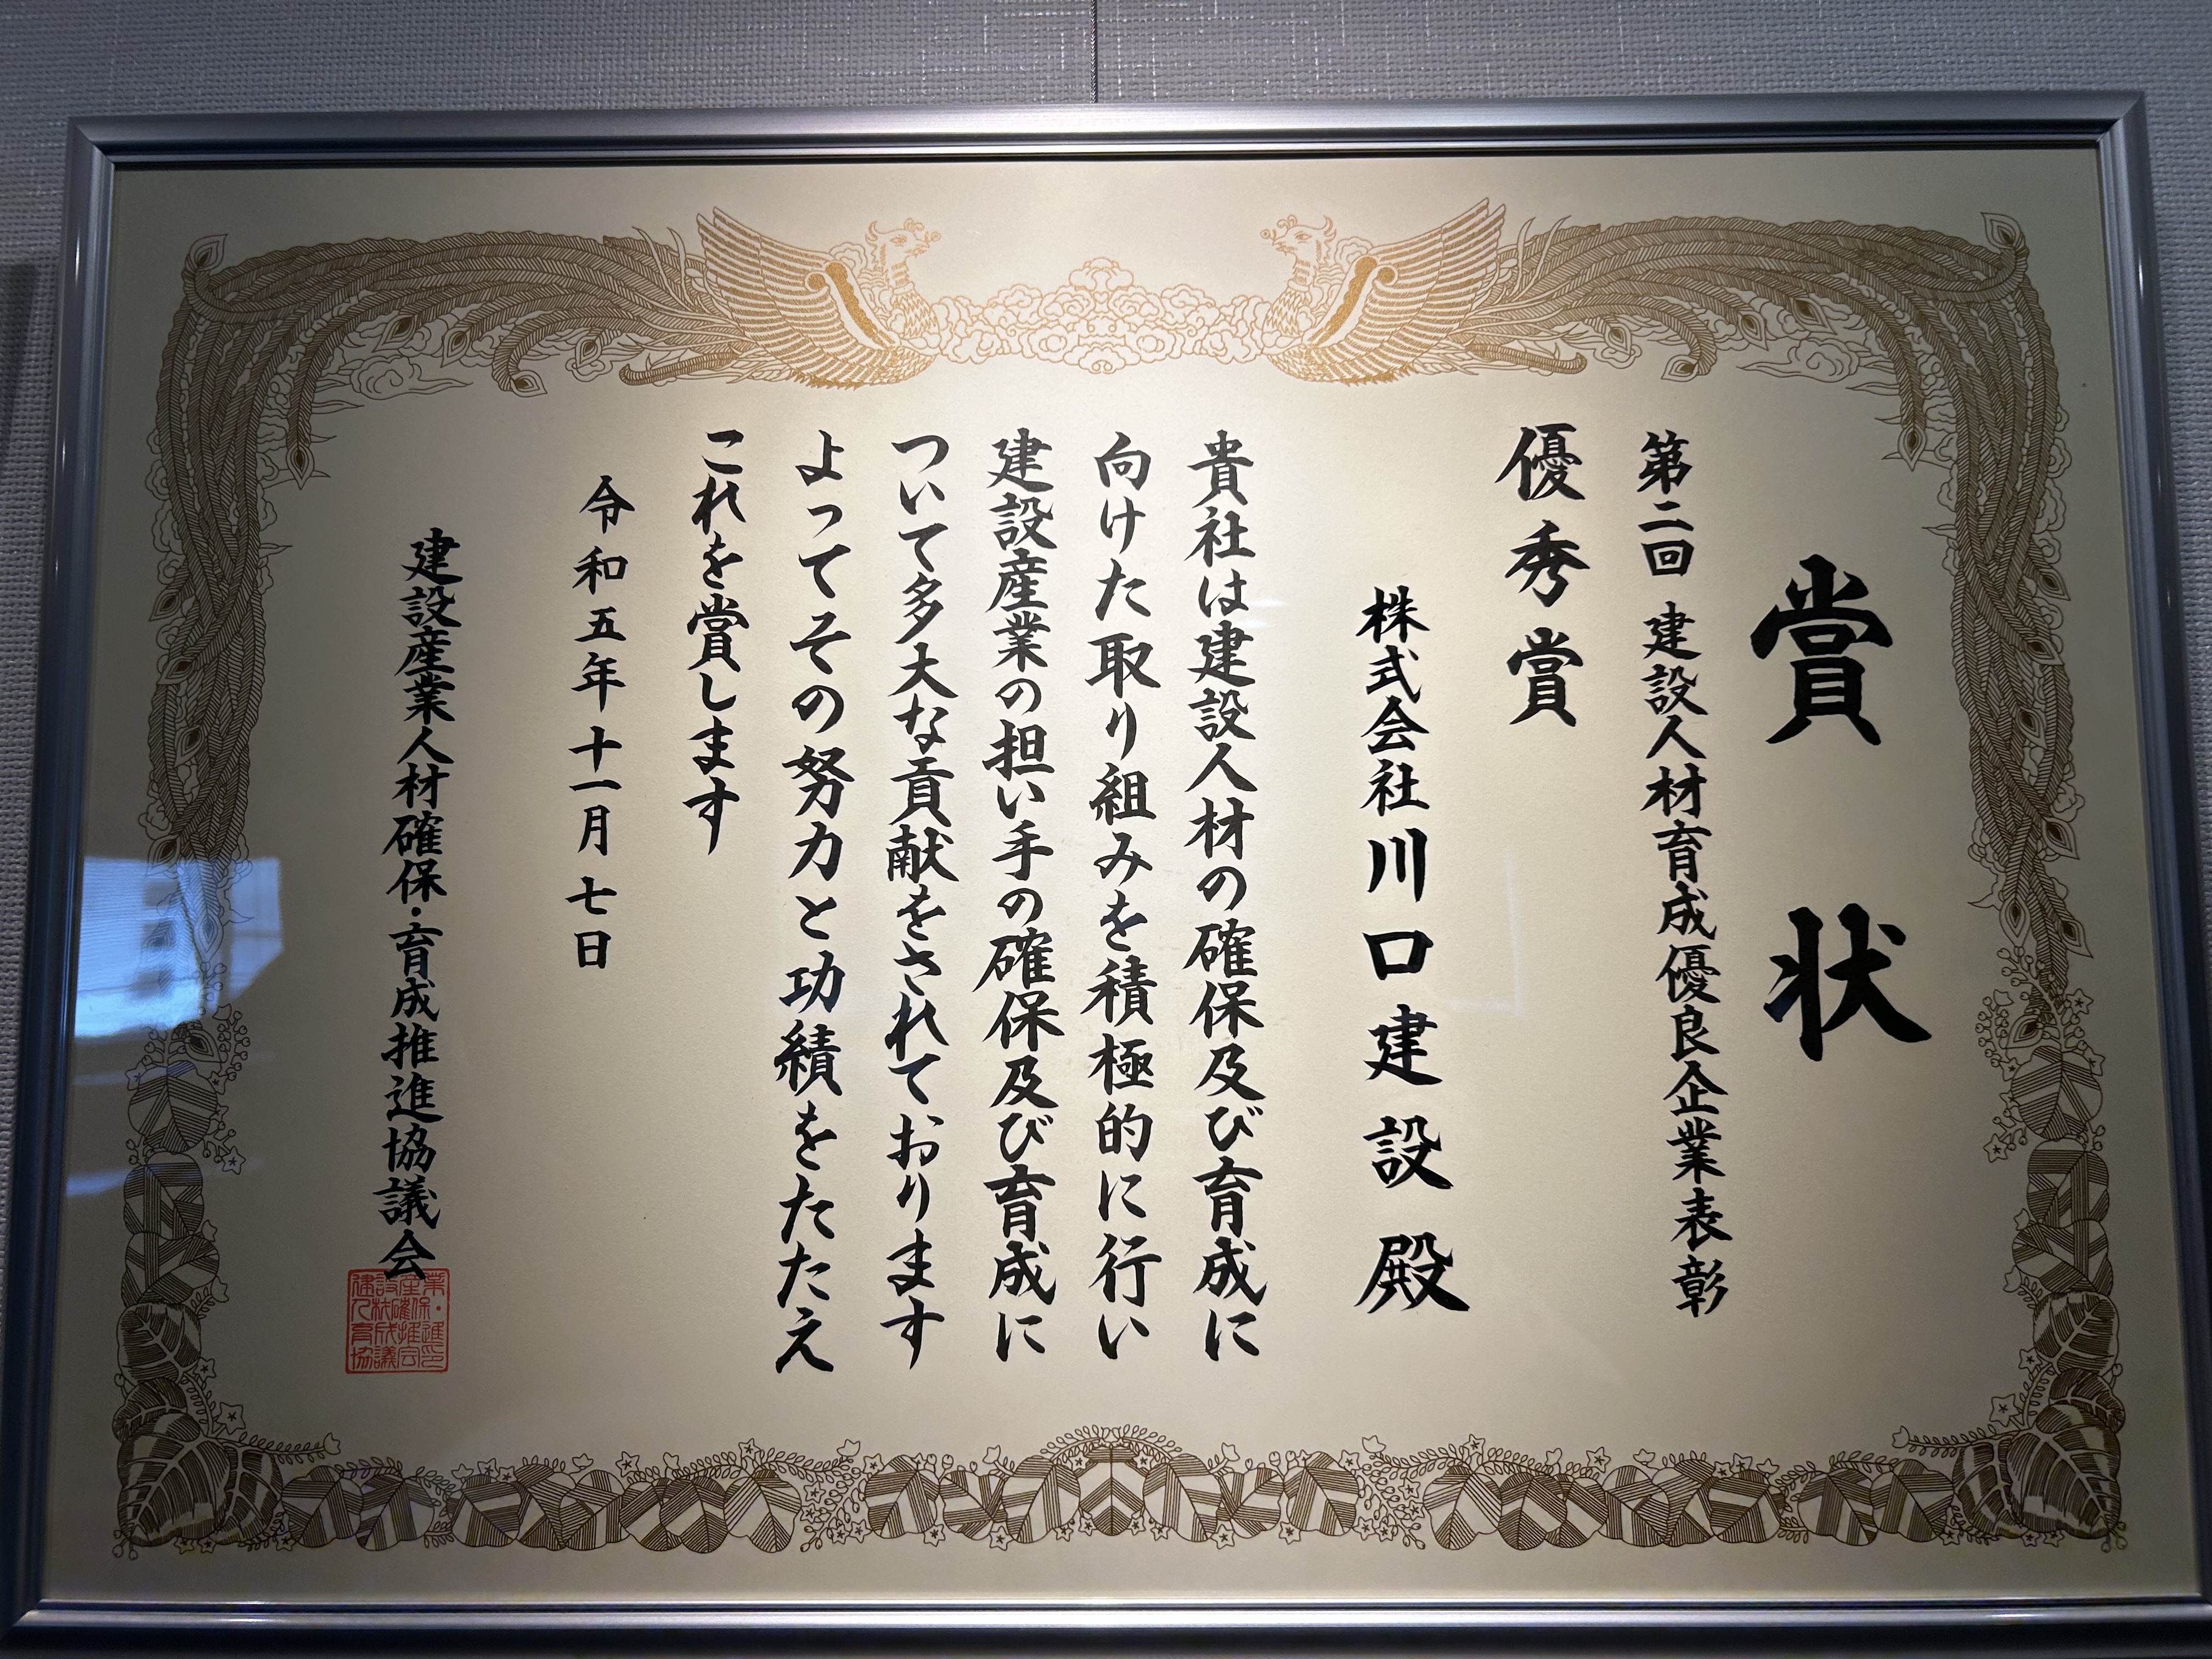 賞状
第二回 建設人材育成優良企業表彰
優秀賞
株式会社川口建設殿
貴社は建設人材の確保及び育成に
向けた取り組みを積極的に行い
建設産業の担い手の確保及び育成に
ついて多大な貢献をされております
よってその努力と功績をたたえ
これを賞します
令和五年十一月七日
建設産業人材確保・育成推進協議会
建設産業
人材確保・
育成推進
協議会印